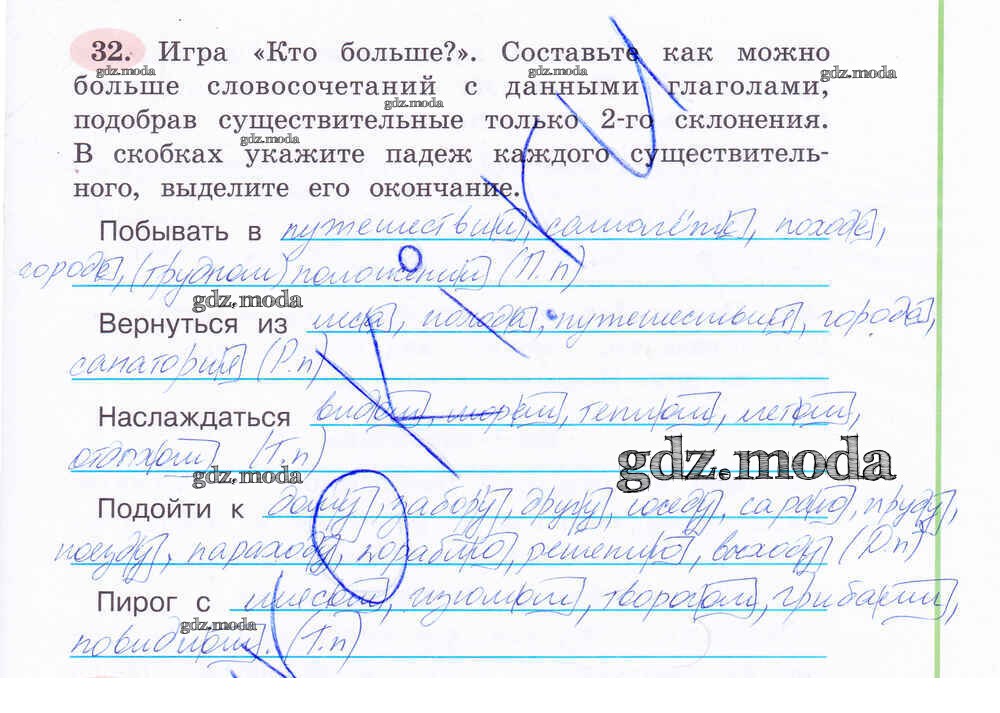 32. Игра «Кто больше?». Составьте как можно
больше словосочетаний с данными глаголами,
подобрав существительные только 2-го склонения.
В скобках укажите падеж каждого существитель-
ного, выделите его окончание.
Побывать в путешествии, самолёте, походе,
городе, (трудном) положении (П.п)
Вернуться из леса, похода, путешествия, города,
санатория (Р.п)
Наслаждаться видом, морем, теплом, летом,
отдыхом (Т.п)
Подойти к дому, забору, другу, соседу, сараю, пруду,
поезду, пароходу, кораблю, решению, выходу (Д.п)
Пирог с мясом, изюмом, творогом, грибами,
повидлом. (Т.п)
gdz.moda
gdz.moda
gdz.moda
gdz.moda
gdz.moda
gdz.moda
gdz.moda
gdz.moda
gdz.moda
gdz.moda